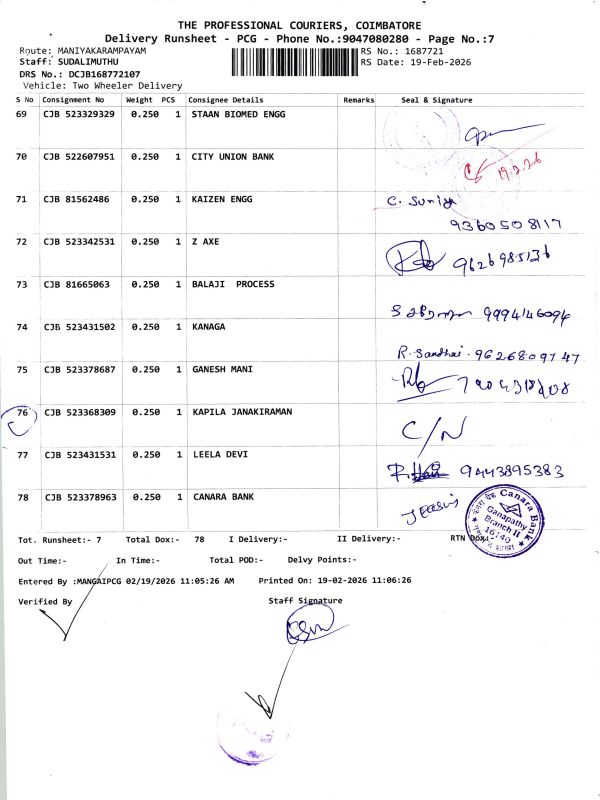 THE PROFESSIONAL COURIERS, COIMBATORE
Delivery Runsheet - PCG - Phone No.:9047080280 - Page No.:7
Route: MANIYAKARAMPAYAM
RS No.: 1687721
Staff: SUDALIMUTHU
RS Date: 19-Feb-2026
DRS No.: DCJB168772107
Vehicle: Two Wheeler Delivery
S No Consignment No Weight PCS Consignee Details Remarks Seal & Signature
69 CJB 523329329 0.250 1 STAAN BIOMED ENGG
70 CJB 522607951 0.250 1 CITY UNION BANK 19.2.26
71 CJB 81562486 0.250 1 KAIZEN ENGG C. Suriya
9360508117
72 CJB 523342531 0.250 1 Z AXE 9626985136
73 CJB 81665063 0.250 1 BALAJI PROCESS
9994146094
74 CJB 523431502 0.250 1 KANAGA
R. Sandhai. 9626809747
75 CJB 523378687 0.250 1 GANESH MANI
76 CJB 523368309 0.250 1 KAPILA JANAKIRAMAN C/N
77 CJB 523431531 1 0.250 1 LEELA DEVI 9443895383
78 CJB 523378963 0.250 1 CANARA BANK
Canara Bank
Ganapathy
Branch II
16140
Tot. Runsheet:- 7 Total Dox:- 78 I Delivery:- II Delivery:- RTN Dox:-
Out Time:- In Time:- Total POD:- Delvy Points:-
Entered By :MANGAIPCG 02/19/2026 11:05:26 AM Printed On: 19-02-2026 11:06:26
Verified By Staff Signature